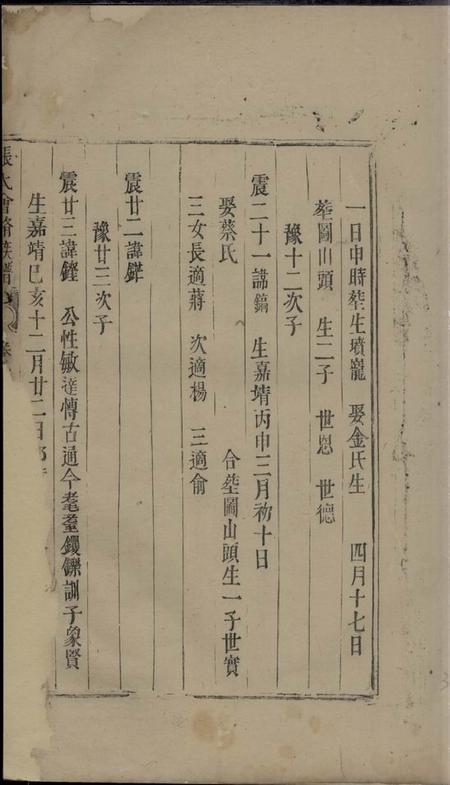 一日申時塟生墳龍 娶金氏生 四月十七日
塟圖山頭 生二子 世恩 世德
豫十二次子
震二十一諱鎬 生嘉靖丙申三月初十日
娶蔡氏 合塟圖山頭生一子世實
三女長適蔣 次適楊 三適俞
震廿二諱鐣
豫廿三次子
震廿三諱鏗 公性敏達慱古通今耄耋钁鑠訓子象賢
生嘉靖巳亥十二月廿二日
張氏會脩族譜